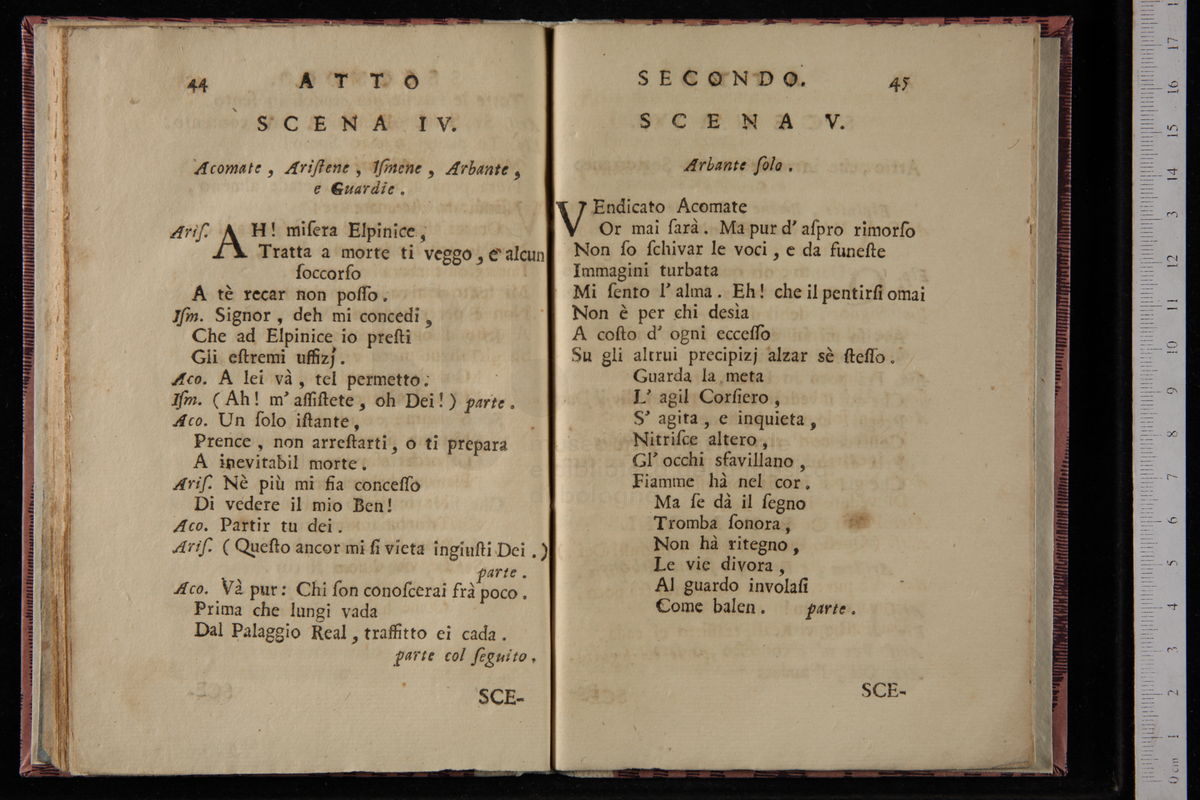 44 ATTO
SCENA IV.
Acomate, Ariſtene, Iſmene, Arbante,
e Guardie.
Ariſ. AH! miſera Elpinice,
Tratta a morte ti veggo, e alcun
ſoccorſo
A tè recar non poſſo.
Iſm. Signor, deh mi concedi,
Che ad Elpinice io preſti
Gli eſtremi uffizj.
Aco. A lei và, tel permetto:
Iſm. (Ah! m'aſſiſtete, oh Dei!) parte.
Aco. Un ſolo iſtante,
Prence, non arreſtarti, o ti prepara
A inevitabil morte.
Ariſ. Nè più mi fia conceſſo
Di vedere il mio Ben!
Aco. Partir tu dei.
Ariſ. (Queſto ancor mi ſi vieta ingiuſti Dei.)
parte.
Aco. Và pur: Chi ſon conoſcerai frà poco.
Prima che lungi vada
Dal Palaggio Real, traffitto ei cada.
parte col ſeguito.
SCE-
SECONDO. 45
SCENA V.
Arbante ſolo.
VEndicato Acomate
Or mai ſarà. Ma pur d'aſpro rimorſo
Non ſo ſchivar le voci, e da funeſte
Immagini turbata
Mi ſento l'alma. Eh! che il pentirſi omai
Non è per chi desìa
A coſto d'ogni ecceſſo
Su gli altrui precipizj alzar sè ſteſſo.
Guarda la meta
L'agil Corſiero,
S'agita, e inquieta,
Nitriſce altero,
Gl'occhi sfavillano,
Fiamme hà nel cor.
Ma ſe dà il ſegno
Tromba ſonora,
Non hà ritegno,
Le vie divora,
Al guardo involaſi
Come balen. parte.
SCE-
0 cm 1 2 3 4 5 6 7 8 9 10 11 12 13 14 15 16 17